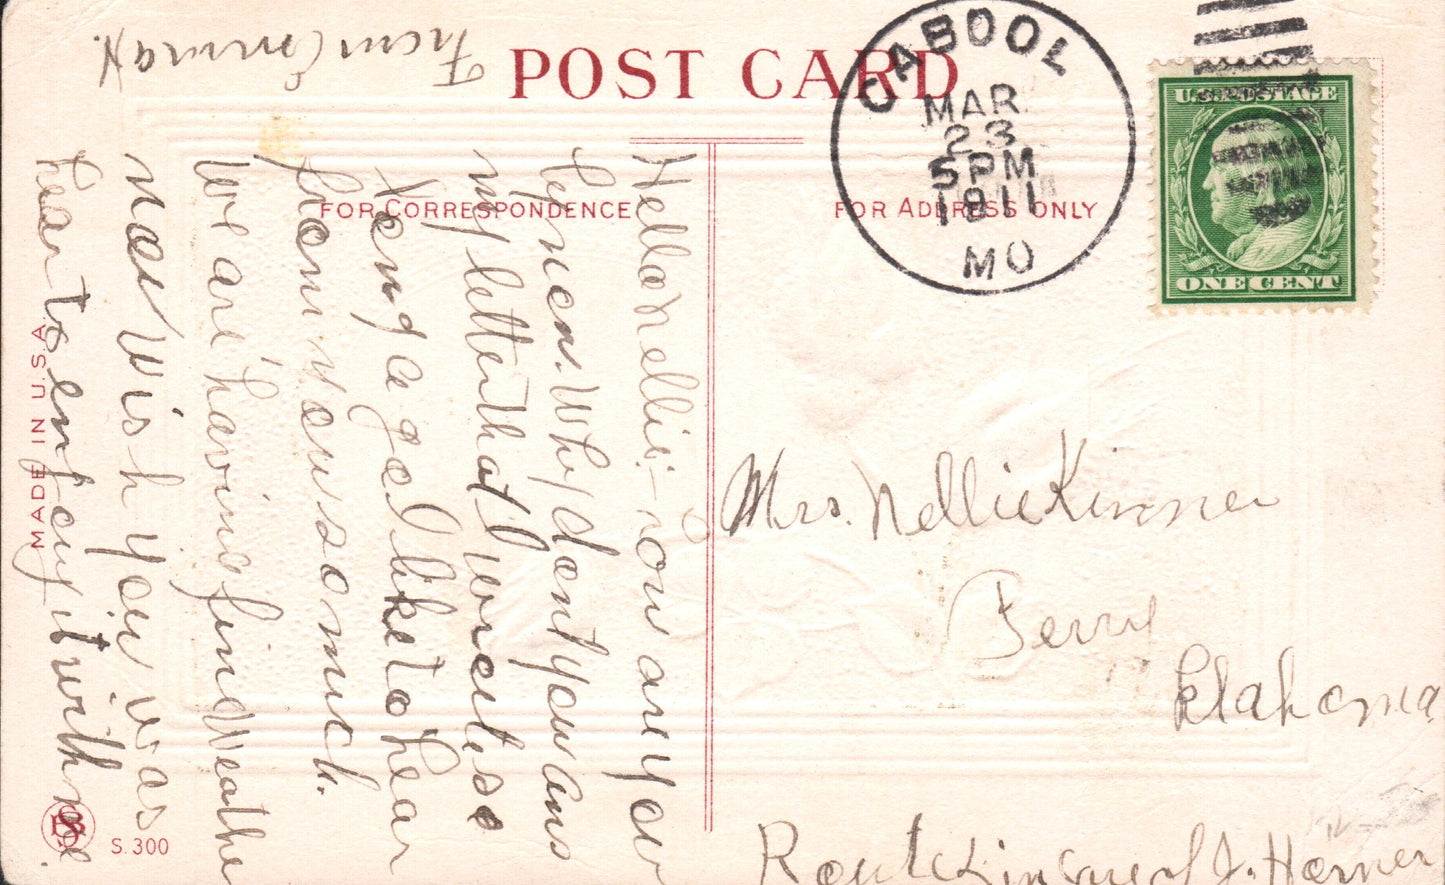 POST CARD
CABOOL
MAR.
23
5 PM
1911
MO
U.S. POSTAGE
ONE CENT
FOR CORRESPONDENCE
FOR ADDRESS ONLY
Hello Nellie:- now are you
Why dont you ans
my letter that I wrote so
long ago I like to hear
from you so much.
We are having fine Weathe
now wish you was
hear to enjoy it with me.
From Emma H.
Mrs. Nellie Kinner
Perry
Oklahoma
Route in care of J. Horner
MADE IN U.S.A.
S. 300